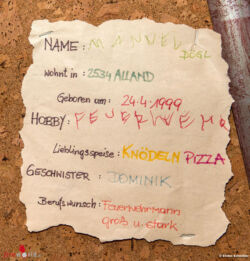 NAME: MANUEL
DOGL
wohnt in: 2534 ALLAND
Geboren am: 24.4.1999
HOBBY: FEUERWEHR
Lieblingsspeise: KNÖDELN PIZZA
GESCHWISTER: DOMINIK
Berufswunsch: Feuerwehrmann
groß u. stark